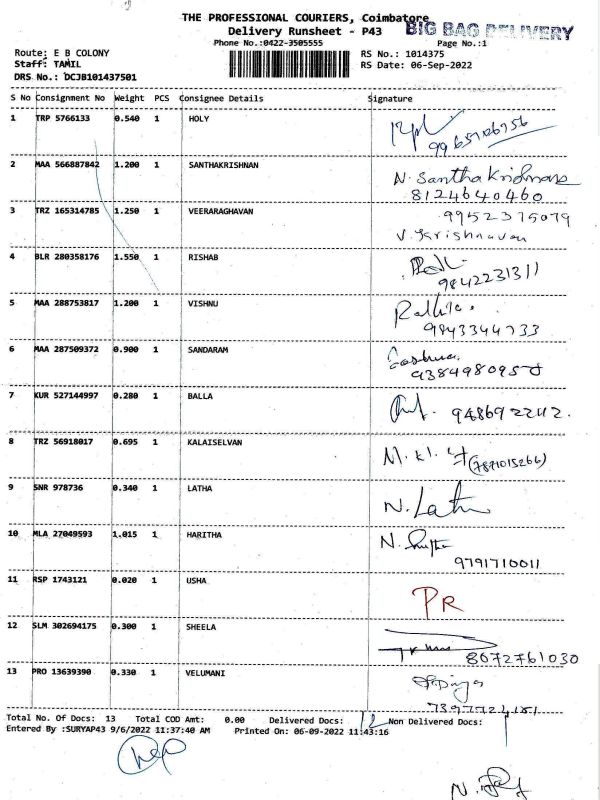 THE PROFESSIONAL COURIERS, Coimbatore
Delivery Runsheet - P43
BIG BAG DELIVERY
Phone No.:0422-3505555
Page No.:1
Route: E B COLONY
RS No.: 1014375
Staff: TAMIL
RS Date: 06-Sep-2022
DRS No.: DCJB101437501
S No Consignment No Weight PCS Consignee Details Signature
1 TRP 5766133 0.540 1 HOLY
2 MAA 566887842 1.200 1 SANTHAKRISHNAN N. Santha Krishnan
8124640460
3 TRZ 165314785 1.250 1 VEERARAGHAVAN 9952375079
4 BLR 280358176 1.550 1 RISHAB
9842231311
5 MAA 288753817 1.200 1 VISHNU
9843344733
6 MAA 287509372 0.900 1 SANDARAM
7 KUR 527144997 0.280 1 BALLA
8 TRZ 56918017 0.695 1 KALAISELVAN (7871015266)
9 SNR 978736 0.340 1 LATHA N. Latha
10 MLA 27049593 1.015 1 HARITHA
9791710011
11 RSP 1743121 0.020 1 USHA PR
12 SLM 302694175 0.300 1 SHEELA
8072761030
13 PRO 13639390 0.330 1 VELUMANI
Total No. Of Docs: 13 Total COD Amt: 0.00 Delivered Docs: 12 Non Delivered Docs: 1
Entered By :SURYAP43 9/6/2022 11:37:40 AM Printed On: 06-09-2022 11:43:16